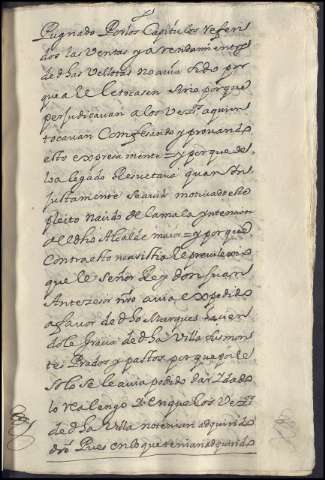 Pugnado Por los Capitulos referi
dos las Ventas y arrendamientos
de dhas Vellotas no auia sido por
que a le le tocasen sino porque
perjudicauan a los Vezos a quien
tocauan Confesando y prouando
esto expresamente = y porque de
lo alegado Resultaua quan in
justamente se auia motiuado este
pleito naçido de la mala yntençion
del dho Alcalde maior = y porque
Contra esto no asistia le preuilexio
que le Señor Rey don Juan
Antezesor nro auia expedido
a fauor de dho Marques hauien
dole graçia de dha Villa sus mon
tes Prados y pastos, porque aquello
solo se le auia podido dar Zedido
lo realengo y en que los Vezos
de dha Villa no tenian adquirido
dro Pues en lo que tenian adquirido